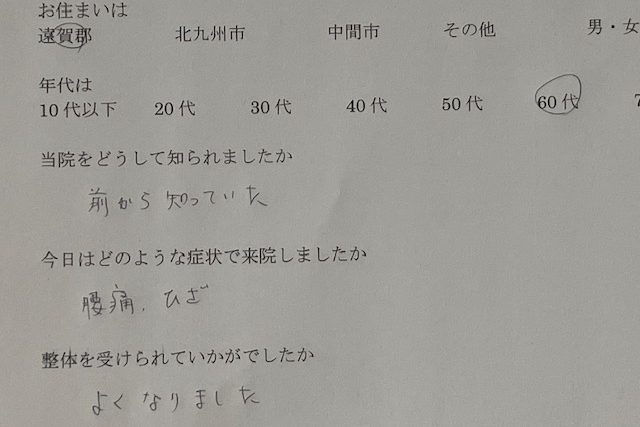 お住まいは
遠賀郡 北九州市 中間市 その他 男・女
年代は
10代以下 20代 30代 40代 50代 60代 7
当院をどうして知られましたか
前から知っていた
今日はどのような症状で来院しましたか
腰痛、ひざ
整体を受けられていかがでしたか
よくなりました